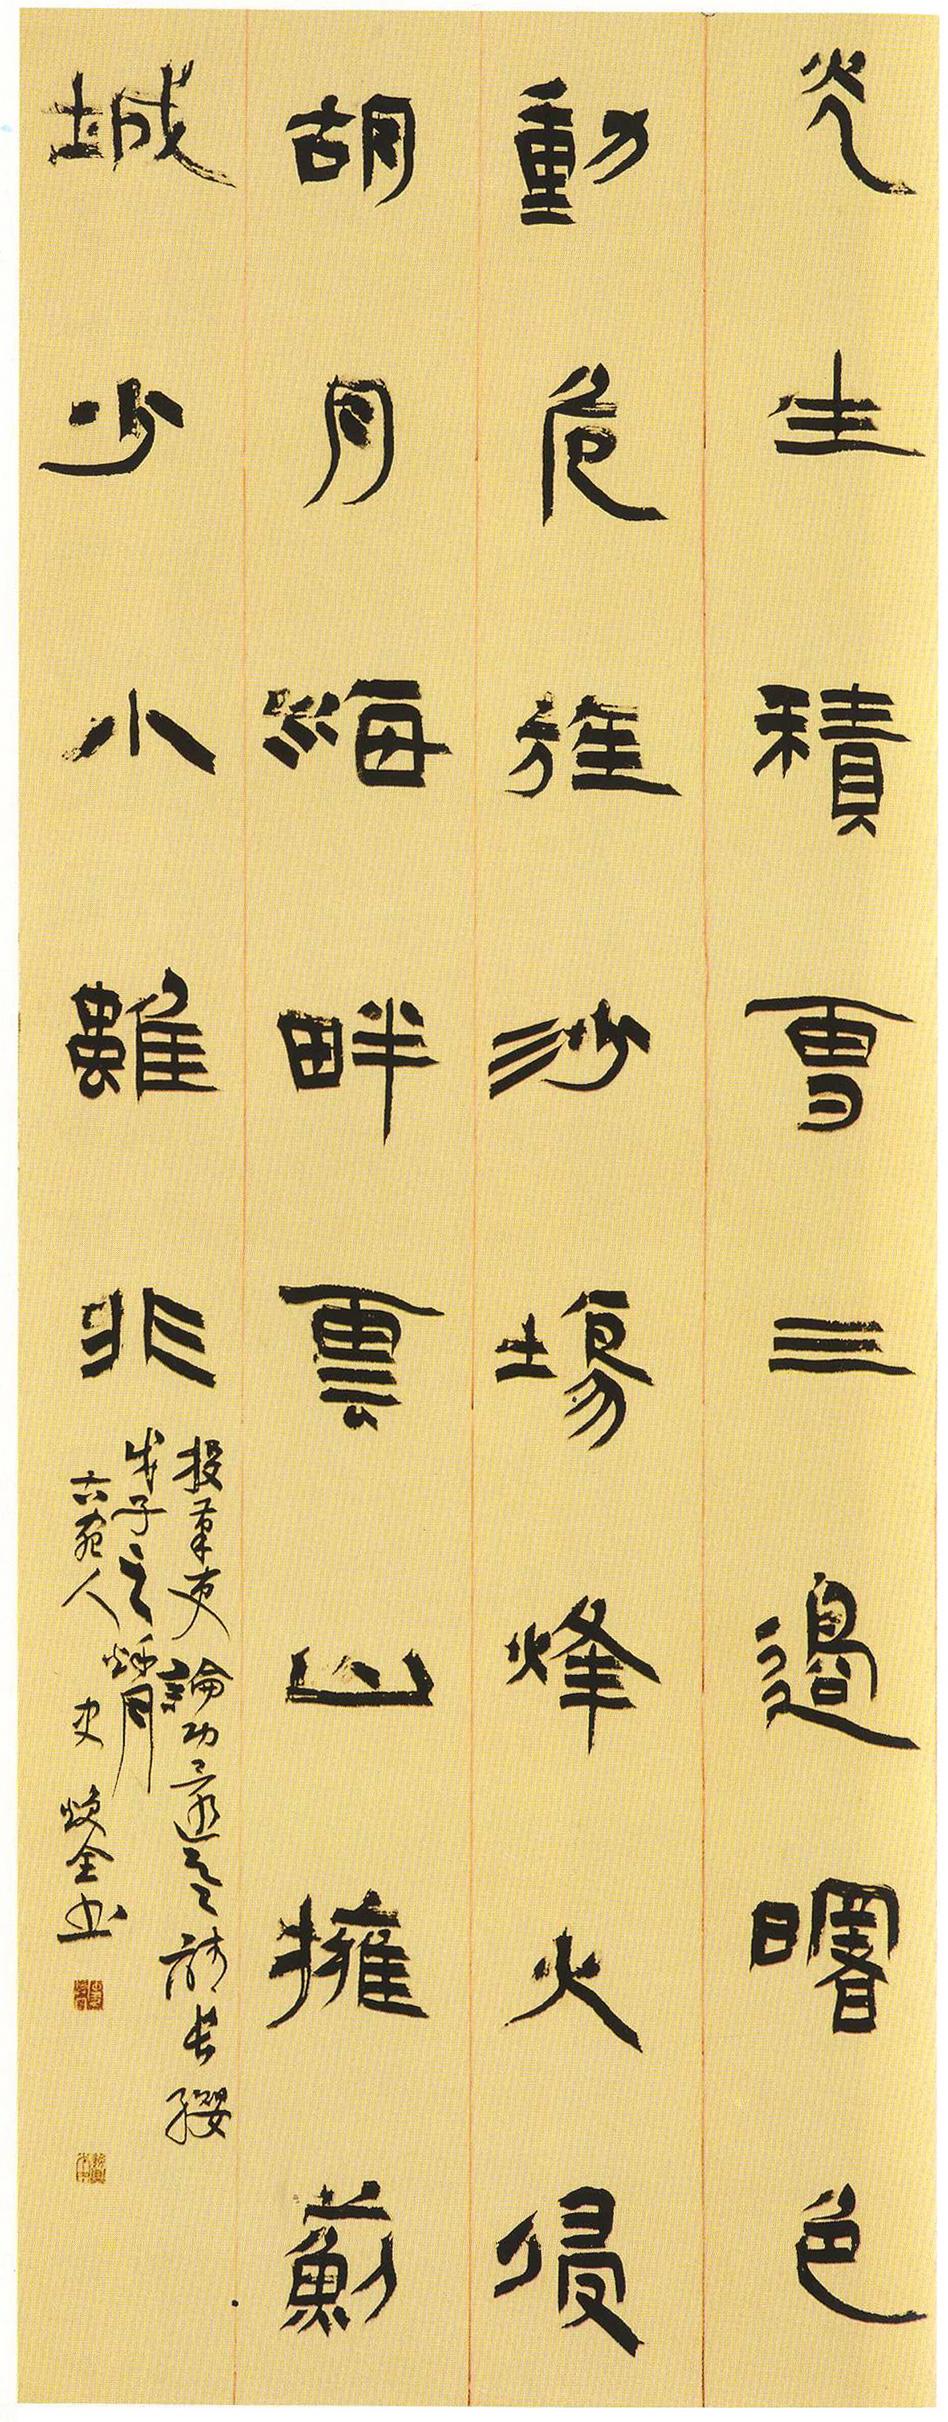 光生積雪三邊曙色
動危旌沙場烽火侵
胡月海畔雲山擁薊
城少小雖非
投筆吏論功還欲請長纓
戊子之月
人史煥全书